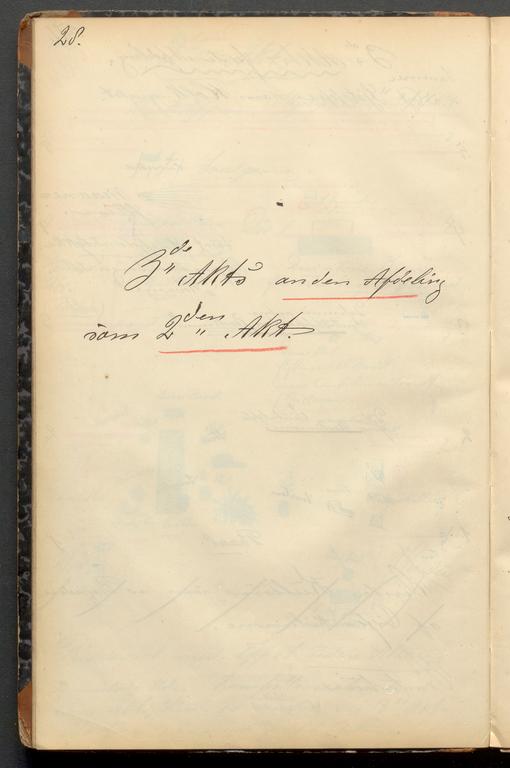 28.
3de Akts anden Afdeling
som 2den Akt.